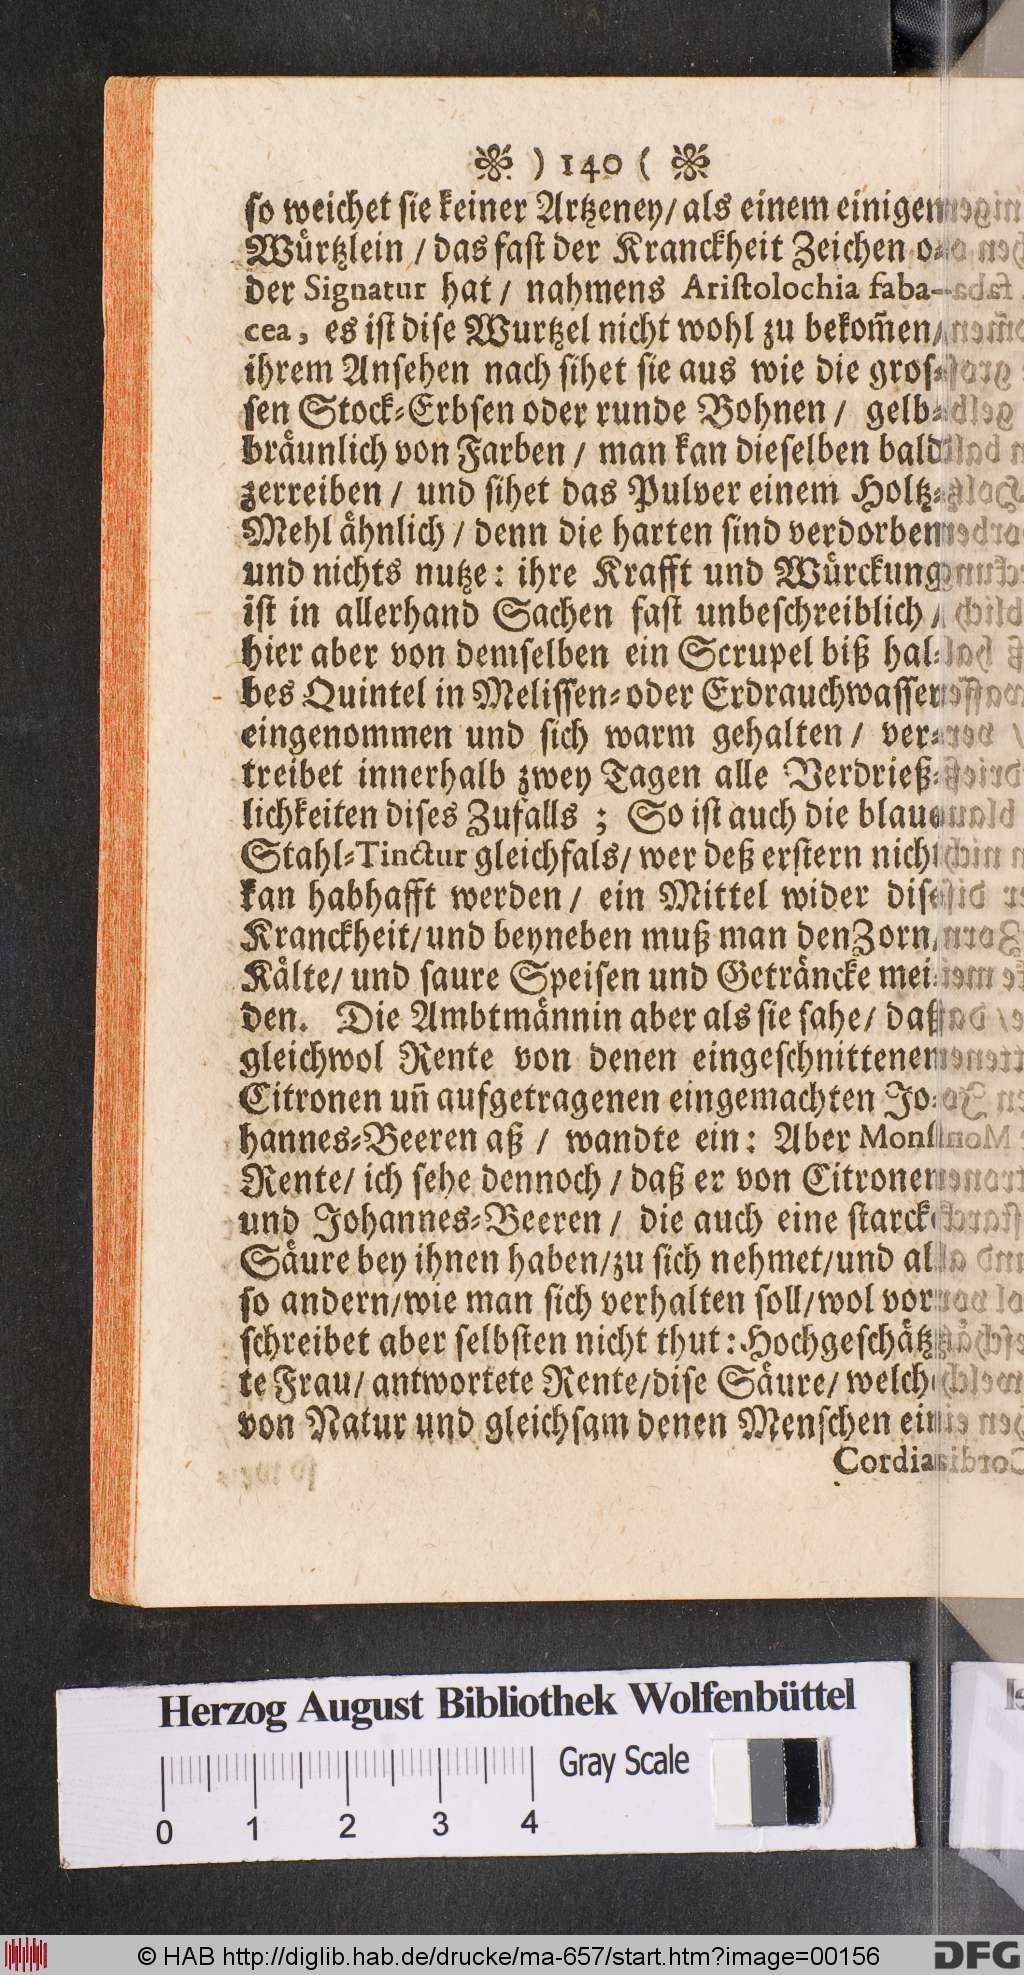 ) 140 (
so weichet sie keiner Artzeney/ als einem einigen
Würtzlein / das fast der Kranckheit Zeichen o-
der Signatur hat / nahmens Aristolochia faba-
cea, es ist dise Wurtzel nicht wohl zu bekom̃en/
ihrem Ansehen nach sihet sie aus wie die gros-
sen Stock-Erbsen oder runde Bohnen / gelb-
bräunlich von Farben / man kan dieselben bald
zerreiben / und sihet das Pulver einem Holtz-
Mehl ähnlich / denn die harten sind verdorben
und nichts nutze: ihre Krafft und Würckung
ist in allerhand Sachen fast unbeschreiblich /
hier aber von demselben ein Scrupel biß hal-
bes Quintel in Melissen-oder Erdrauchwasser
eingenommen und sich warm gehalten / ver-
treibet innerhalb zwey Tagen alle Verdrieß-
lichkeiten dises Zufalls ; So ist auch die blaue
Stahl-Tinctur gleichfals/ wer deß erstern nicht
kan habhafft werden / ein Mittel wider dise
Kranckheit/ und beyneben muß man den Zorn/
Kälte/ und saure Speisen und Geträncke mei-
den. Die Ambtmännin aber als sie sahe/ daß
gleichwol Rente von denen eingeschnittenen
Citronen uñ aufgetragenen eingemachten Jo-
hannes-Beeren aß / wandte ein: Aber Mons.
Rente/ ich sehe dennoch / daß er von Citronen
und Johannes-Beeren / die auch eine starcke
Säure bey ihnen haben/zu sich nehmet/und al-
so andern/wie man sich verhalten soll/wol vor-
schreibet aber selbsten nicht thut: Hochgeschätz-
te Frau/ antwortete Rente/dise Säure/ welche
von Natur und gleichsam denen Menschen ein
Cordia
Herzog August Bibliothek Wolfenbüttel
Gray Scale
0 1 2 3 4
© HAB http://diglib.hab.de/drucke/ma-657/start.htm?image=00156
DFG